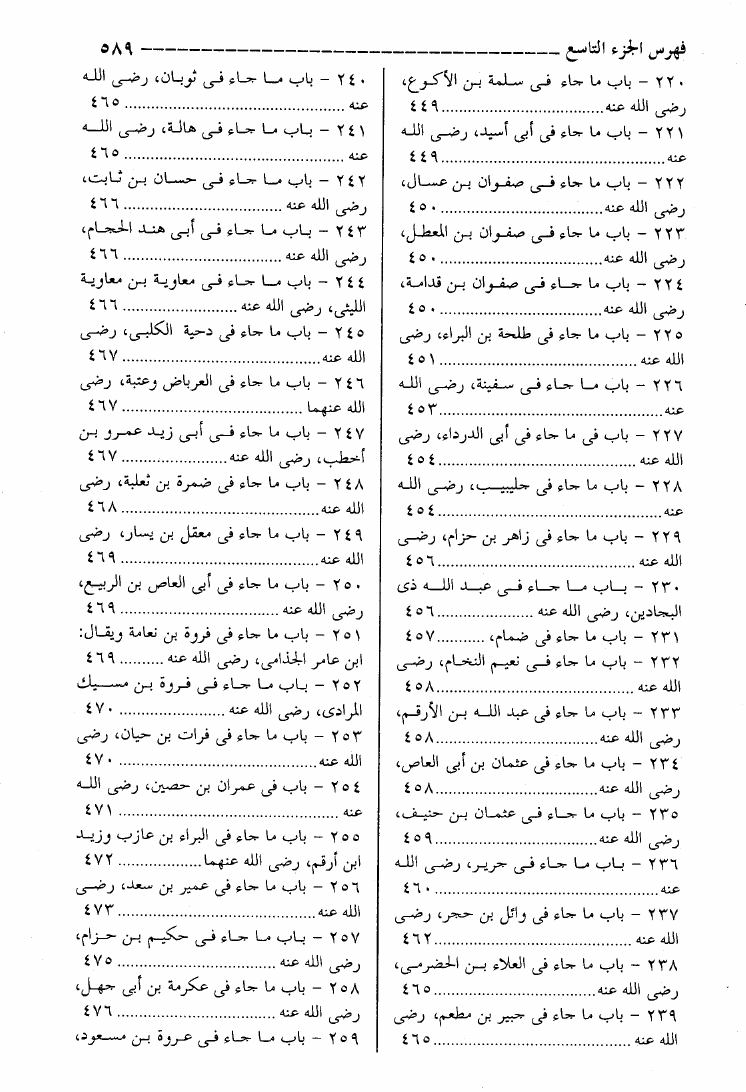 فهرس الجزء التاسع ـــــــــــــــــــــــــــــــــــــــــــــــــــ ٥٨٩
٢٢٠ - باب ما جاء فى سلمة بن الأكوع،
رضى الله عنه.......................................٤٤٩
٢٢١ - باب ما جاء فى أبى أسيد، رضى الله
عنه.......................................٤٤٩
٢٢٢ - باب ما جاء فى صفوان بن عسال،
رضى الله عنه.......................................٤٥٠
٢٢٣ - باب ما جاء فى صفوان بن المعطل،
رضى الله عنه.......................................٤٥٠
٢٢٤ - باب ما جاء فى صفوان بن قدامة،
رضى الله عنه.......................................٤٥٠
٢٢٥ - باب ما جاء فى طلحة بن البراء، رضى
الله عنه.......................................٤٥١
٢٢٦ - باب ما جاء فى سفينة، رضى الله
عنه.......................................٤٥٣
٢٢٧ - باب فى ما جاء فى أبى الدرداء، رضى
الله عنه.......................................٤٥٤
٢٢٨ - باب ما جاء فى جليبيب، رضى الله
عنه.......................................٤٥٤
٢٢٩ - باب ما جاء فى زاهر بن حزام، رضى
الله عنه.......................................٤٥٦
٢٣٠ - باب ما جاء فى عبد الله ذى
البجادين، رضى الله عنه.......................٤٥٦
٢٣١ - باب ما جاء فى ضمام،...........٤٥٧
٢٣٢ - باب ما جاء فى نعيم النخام، رضى
الله عنه.......................................٤٥٨
٢٣٣ - باب ما جاء فى عبد الله بن الأرقم،
رضى الله عنه.......................................٤٥٨
٢٣٤ - باب ما جاء فى عثمان بن أبى العاص،
رضى الله عنه.......................................٤٥٨
٢٣٥ - باب ما جاء فى عثمان بن حنيف،
رضى الله عنه.......................................٤٥٩
٢٣٦ - باب ما جاء فى جرير، رضى الله
عنه.......................................٤٦٠
٢٣٧ - باب ما جاء فى وائل بن حجر، رضى
الله عنه.......................................٤٦٢
٢٣٨ - باب ما جاء فى العلاء بن الحضرمى،
رضى الله عنه.......................................٤٦٥
٢٣٩ - باب ما جاء فى جبير بن مطعم، رضى
الله عنه.......................................٤٦٥
٢٤٠ - باب ما جاء فى ثوبان، رضى الله
عنه.......................................٤٦٥
٢٤١ - باب ما جاء فى هالة، رضى الله
عنه.......................................٤٦٥
٢٤٢ - باب ما جاء فى حسان بن ثابت،
رضى الله عنه.......................................٤٦٦
٢٤٣ - باب ما جاء فى أبى هند الحجام،
رضى الله عنه.......................................٤٦٦
٢٤٤ - باب ما جاء فى معاوية بن معاوية
الليثى، رضى الله عنه.......................٤٦٦
٢٤٥ - باب ما جاء فى دحية الكلبى، رضى
الله عنه.......................................٤٦٧
٢٤٦ - باب ما جاء فى العرباض وعتبة، رضى
الله عنهما.......................................٤٦٧
٢٤٧ - باب ما جاء فى أبى زيد عمرو بن
أخطب، رضى الله عنه.......................٤٦٧
٢٤٨ - باب ما جاء فى ضمرة بن ثعلبة، رضى
الله عنه.......................................٤٦٨
٢٤٩ - باب ما جاء فى معقل بن يسار، رضى
الله عنه.......................................٤٦٩
٢٥٠ - باب ما جاء فى أبى العاص بن الربيع،
رضى الله عنه.......................................٤٦٩
٢٥١ - باب ما جاء فى فروة بن نعامة ويقال:
ابن عامر الجذامى، رضى الله عنه..........٤٦٩
٢٥٢ - باب ما جاء فى فروة بن مسيك
المرادى، رضى الله عنه.......................٤٧٠
٢٥٣ - باب ما جاء فى فرات بن حيان، رضى
الله عنه.......................................٤٧٠
٢٥٤ - باب فى عمران بن حصين، رضى الله
عنه.......................................٤٧١
٢٥٥ - باب ما جاء فى البراء بن عازب وزيد
ابن أرقم، رضى الله عنهما...................٤٧٢
٢٥٦ - باب ما جاء فى عمير بن سعد، رضى
الله عنه.......................................٤٧٣
٢٥٧ - باب ما جاء فى حكيم بن حزام،
رضى الله عنه.......................................٤٧٥
٢٥٨ - باب ما جاء فى عكرمة بن أبى جهل،
رضى الله عنه.......................................٤٧٦
٢٥٩ - باب ما جاء فى عروة بن مسعود،